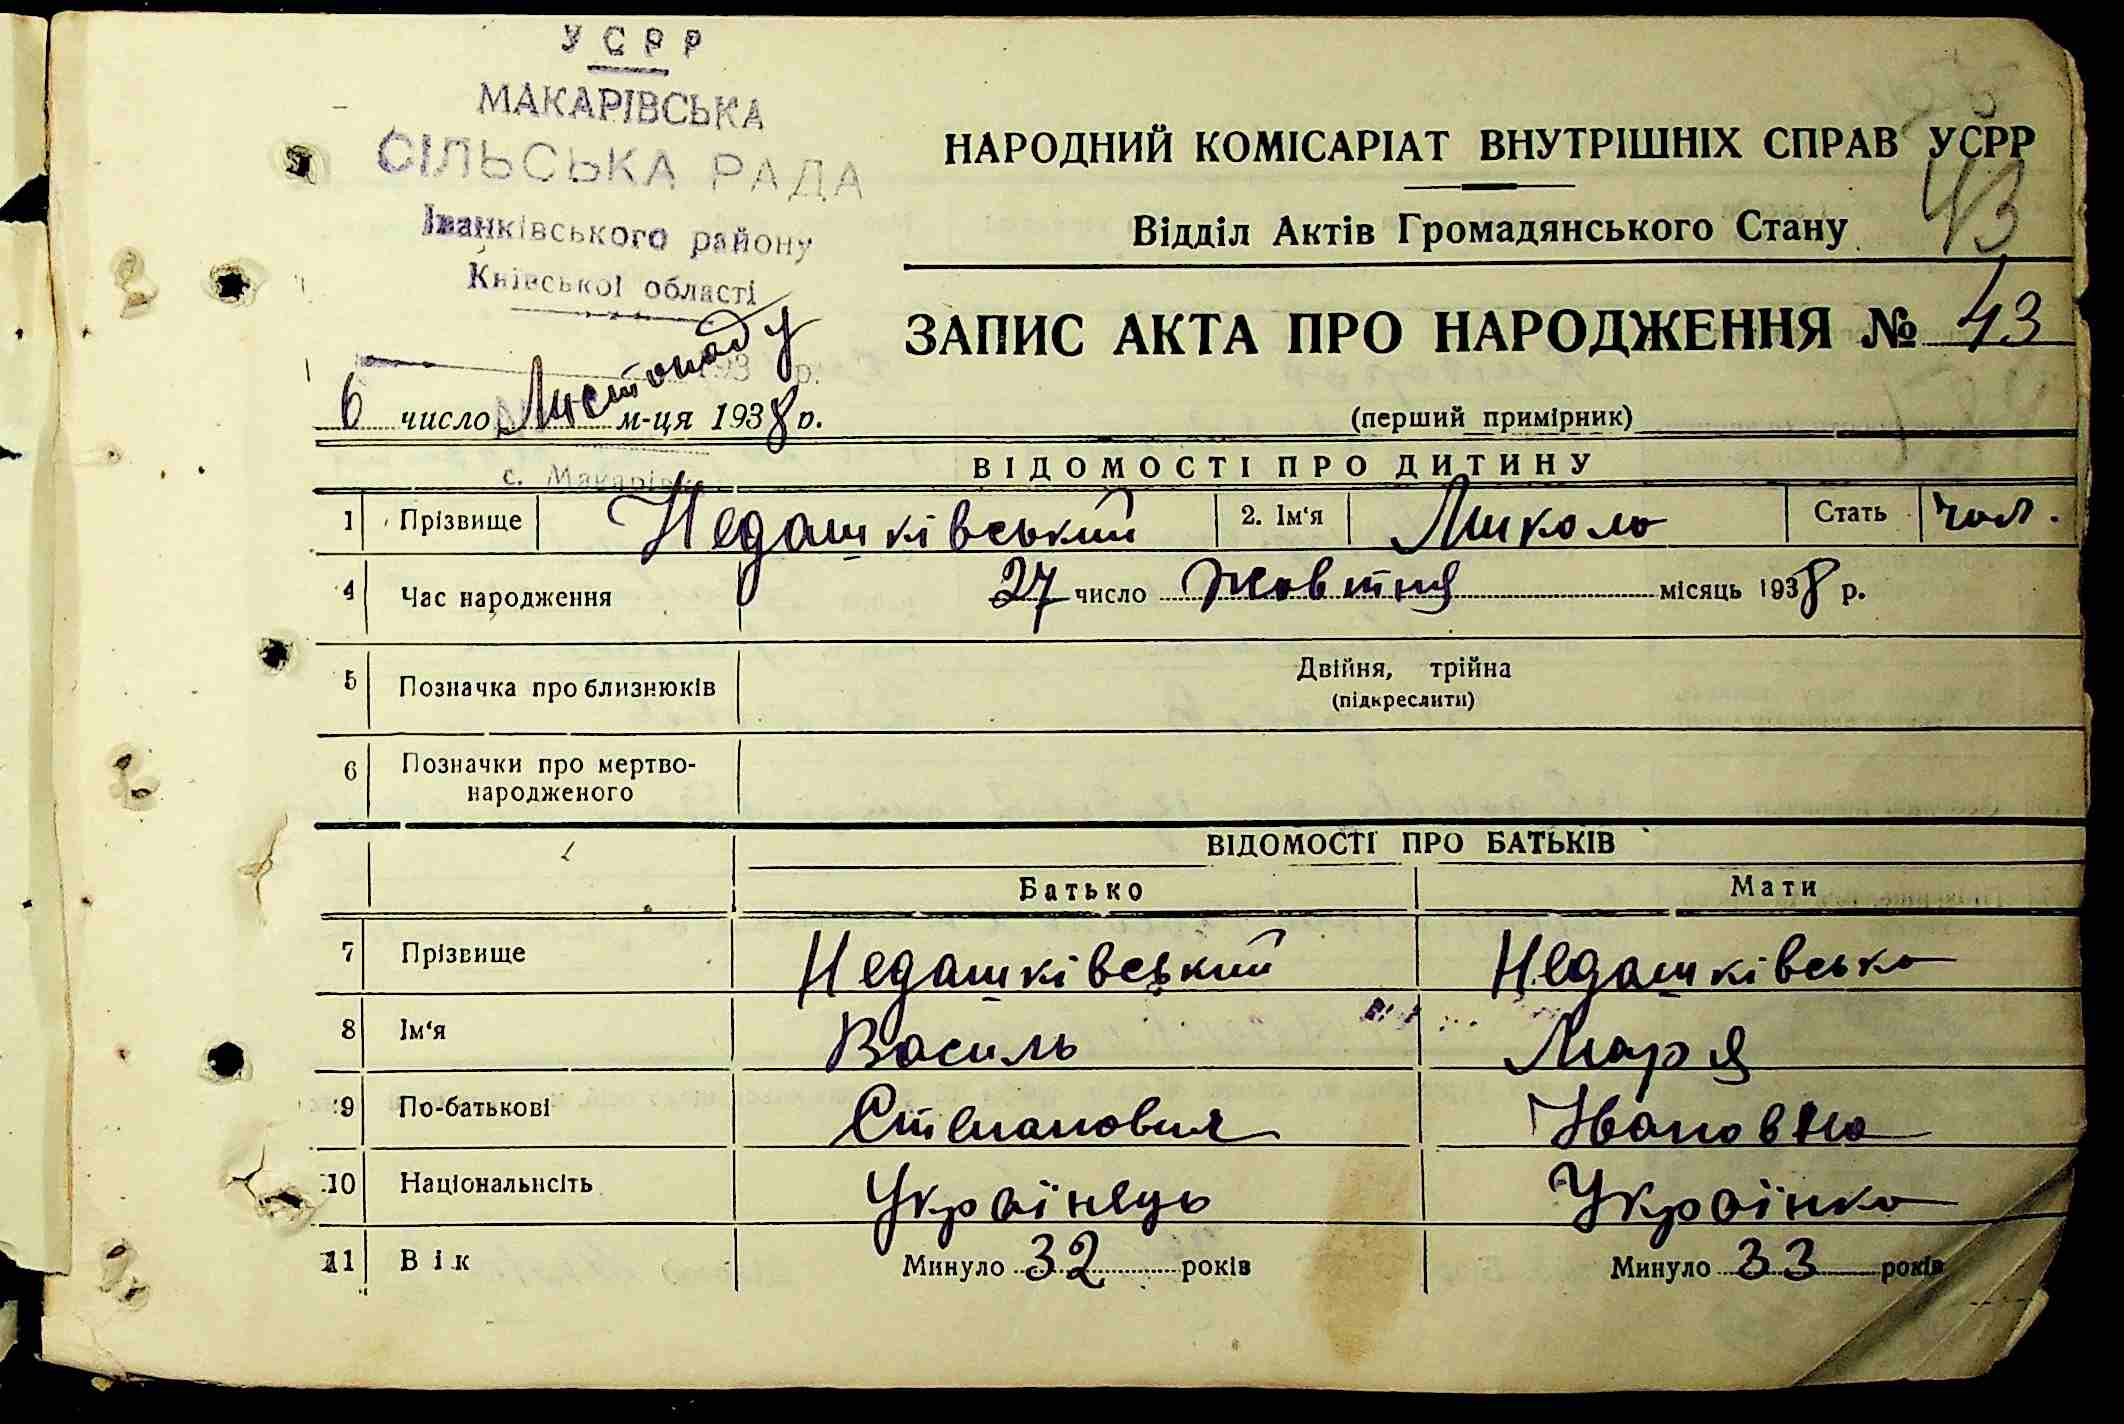 УСРР
МАКАРІВСЬКА
СІЛЬСЬКА РАДА
Іванківського району
Київської області
193 р.
с. Макарівка
43
НАРОДНИЙ КОМІСАРІАТ ВНУТРІШНІХ СПРАВ УСРР
Відділ Актів Громадянського Стану
ЗАПИС АКТА ПРО НАРОДЖЕННЯ № 43
6 число Листопаду м-ця 1938 р.
(перший примірник)
ВІДОМОСТІ ПРО ДИТИНУ
1 Прізвище Недашківський 2. Ім‘я Миколь Стать чол.
4 Час народження 27 число жовтня місяць 1938 р.
5 Позначка про близнюків Двійня, трійна
(підкреслити)
6 Позначки про мертво-
народженого
ВІДОМОСТІ ПРО БАТЬКІВ
Батько Мати
7 Прізвище Недашківський Недашківська
8 Ім‘я Василь Марія
9 По-батькові Степанович Івановна
10 Національність Українець Українка
11 Вік Минуло 32 років Минуло 33 років